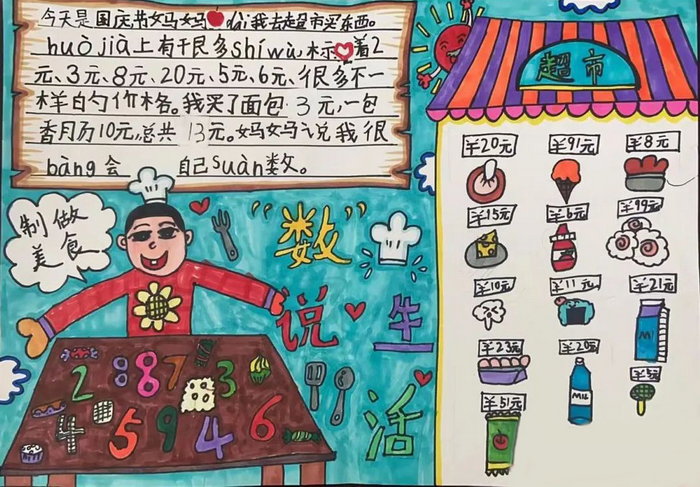 今天是国庆节妈妈dài我去超市买东西。
huò jià上有于艮多shíwù,标示着2
元、3元、8元、20元、5元、6元、很多不一
样白勺价格。我买了面包3元,一包
香月历10元,总共13元。妈妈说我很
bàng会 自己suàn数。
制做
美食
"数"
说
生
活
2 8 8 7 3
4 5 9 4 6
超市
¥20元 ¥91元 ¥8元
¥15元 ¥6元 ¥99元
¥10元 ¥11元 ¥21元
¥23元 ¥20元 ¥5元
¥51元
MIL
MIL